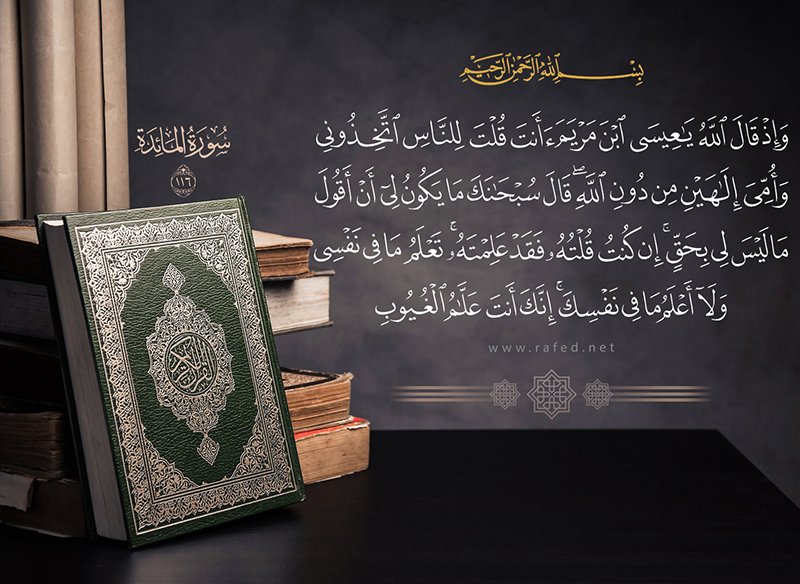 بِسْمِ اللَّهِ الرَّحْمَٰنِ الرَّحِيمِ
وَإِذْ قَالَ ٱللَّهُ يَـٰعِيسَى ٱبْنَ مَرْيَمَ ءَأَنتَ قُلْتَ لِلنَّاسِ ٱتَّخِذُونِى
وَأُمِّىَ إِلَـٰهَيْنِ مِن دُونِ ٱللَّهِ ۖ قَالَ سُبْحَـٰنَكَ مَا يَكُونُ لِىٓ أَنْ أَقُولَ
مَا لَيْسَ لِى بِحَقٍّ ۚ إِن كُنتُ قُلْتُهُۥ فَقَدْ عَلِمْتَهُۥ ۚ تَعْلَمُ مَا فِى نَفْسِى
وَلَآ أَعْلَمُ مَا فِى نَفْسِكَ ۚ إِنَّكَ أَنتَ عَلَّـٰمُ ٱلْغُيُوبِ
www.rafed.net
سُورَةُ المَائِدَةِ
١١٦
القرآن الكريم